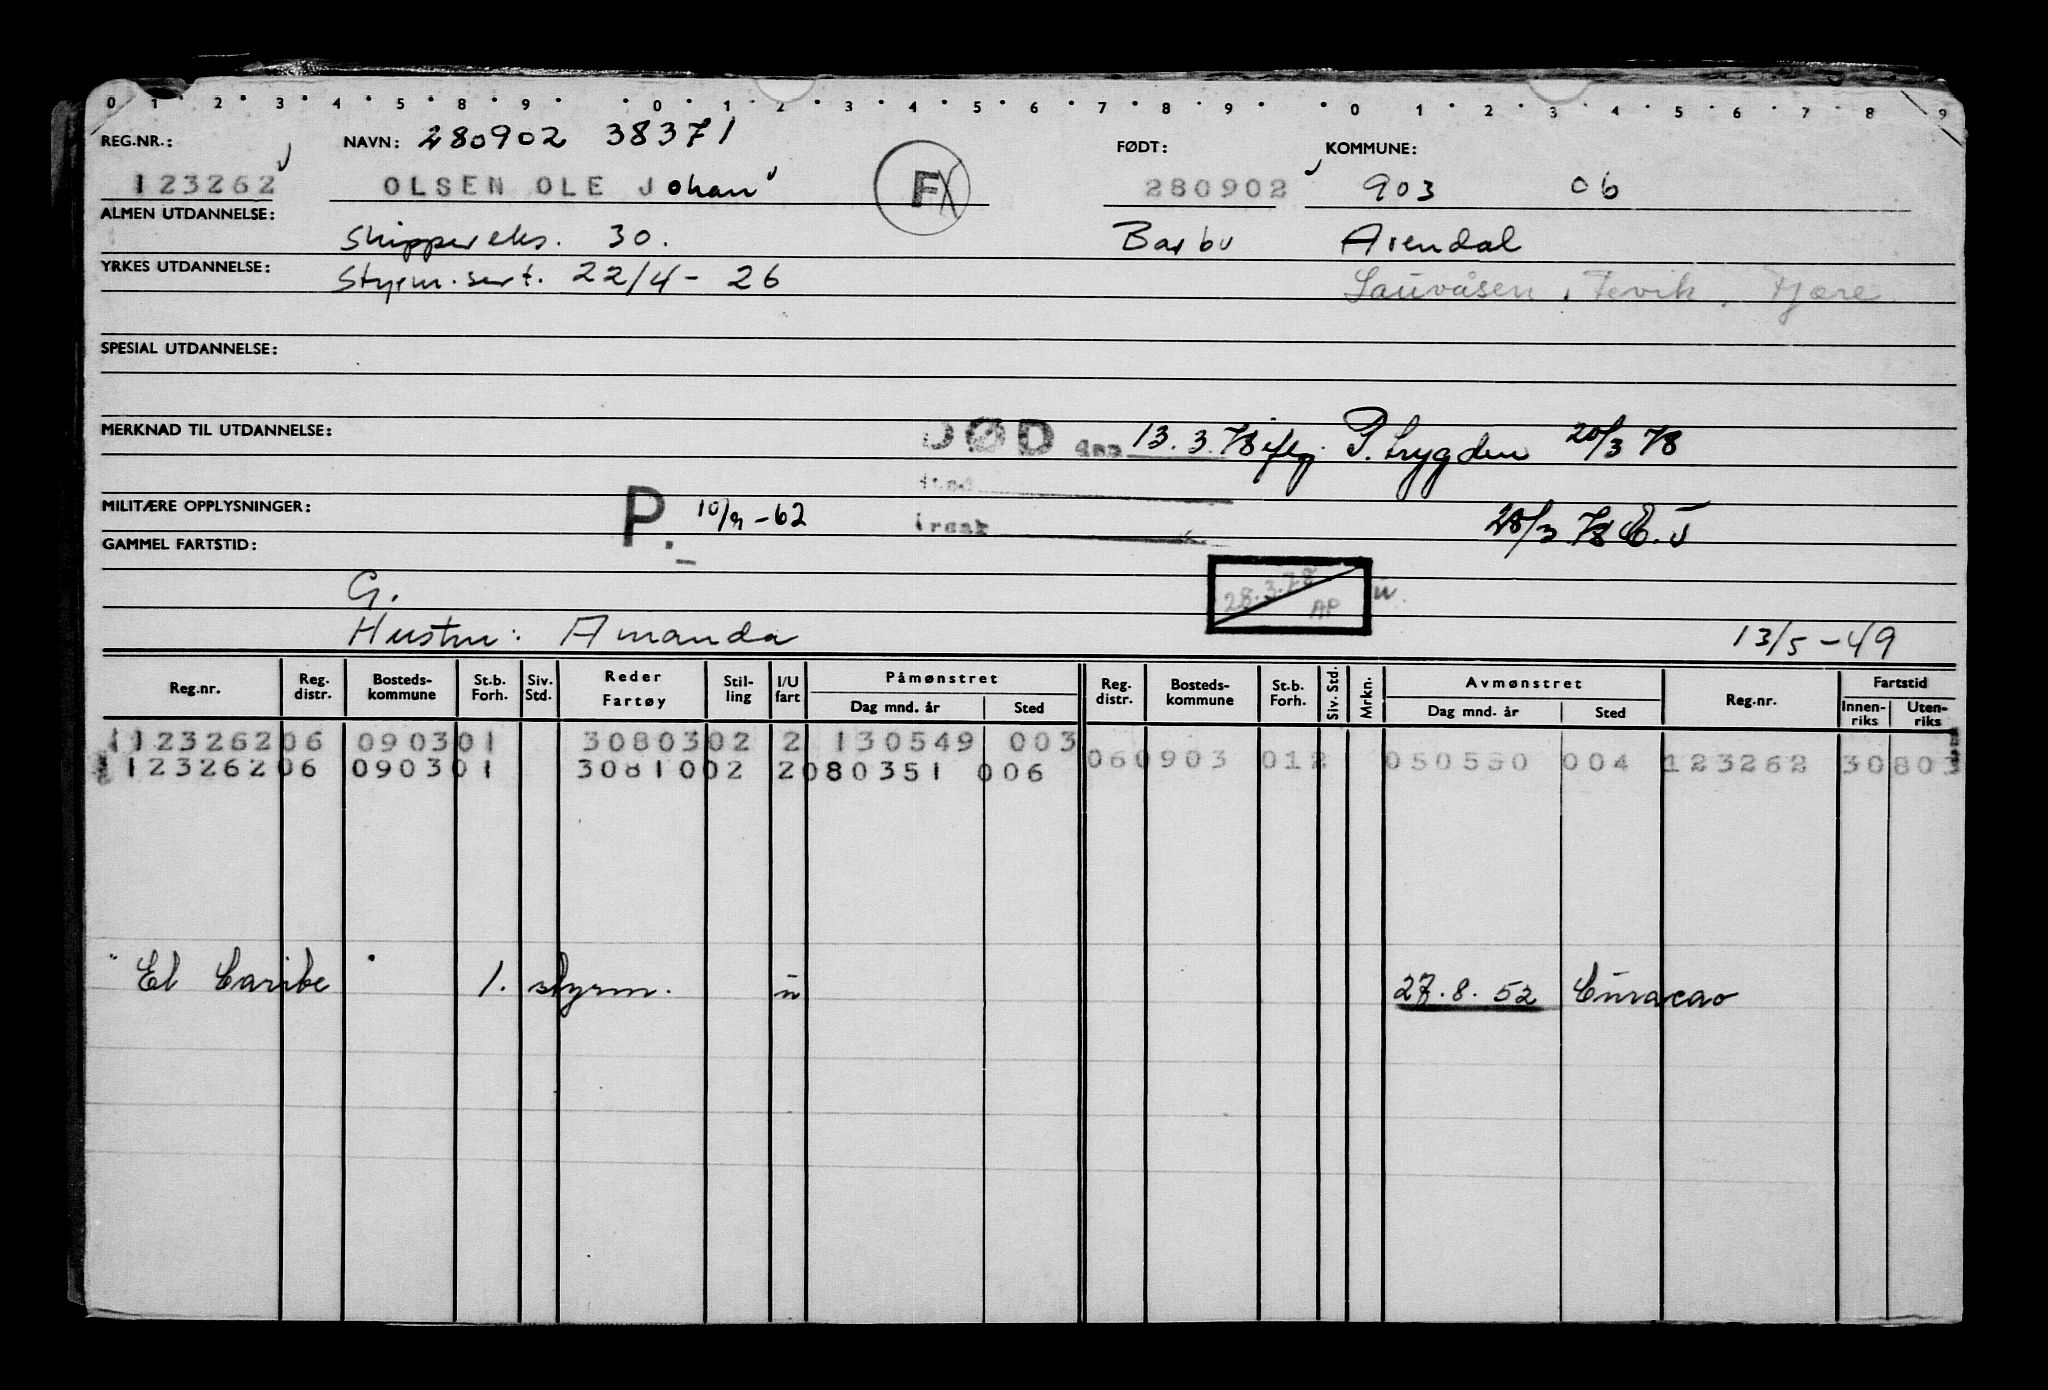 0 1 2 3 4 5 6 8 9 0 1 2 3 4 5 6 7 8 9 0 1 2 3 4 5 6 7 8 9
REG.NR.: NAVN: 280902 38371 FØDT: KOMMUNE:
123262 OLSEN OLE Johan F 280902 903 06
ALMEN UTDANNELSE: Skippereks. 30. Barbu Arendal
YRKES UTDANNELSE: Styrm.sert. 22/4 - 26 Sauvåsen, Fevik, Fjære
SPESIAL UTDANNELSE:
MERKNAD TIL UTDANNELSE: DØD den 13.3.78 iflg. P. trygden 20/3 78
sted
MILITÆRE OPPLYSNINGER: P. 10/9-62 årsak 28/3 78
GAMMEL FARTSTID:
28.3.78 AP
G.
Hustru: Amanda 13/5-49
Reg.nr. Reg. distr. Bosteds-kommune St.b. Forh. Siv. Std. Reder Fartøy Stil-ling I/U fart Påmønstret Dag mnd. år Sted Reg. distr. Bosteds-kommune St.b. Forh. Siv. Std. Mrkn. Avmønstret Dag mnd. år Sted Reg.nr. Fartstid Innen-riks Uten-riks
112326206 090301 3080302 2 130549 003
12326206 090301 30810 02 2080351 006 060903 012 050550 004 123262 30803
"El Caribe" 1. styrm. u 27.8.52 Curacao